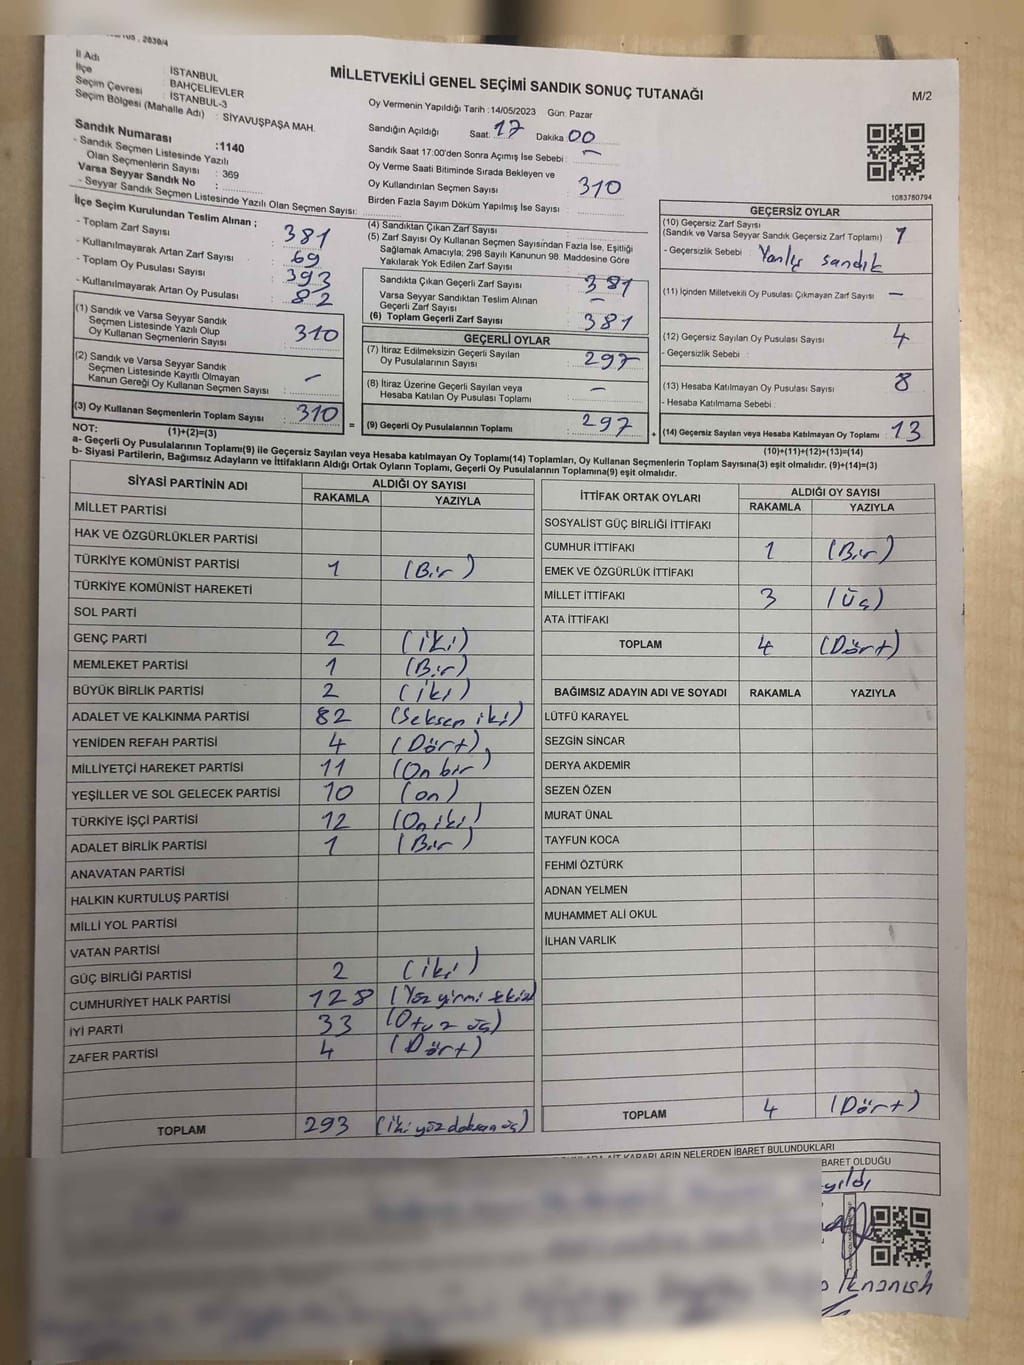 MİLLETVEKİLİ GENEL SEÇİMİ SANDIK SONUÇ TUTANAĞI
M/2
İl Adı : İSTANBUL
İlçe : BAHÇELİEVLER
Seçim Çevresi : İSTANBUL-3
Seçim Bölgesi (Mahalle Adı) : SİYAVUŞPAŞA MAH.
Sandık Numarası :1140
- Sandık Seçmen Listesinde Yazılı
Olan Seçmenlerin Sayısı : 369
Varsa Seyyar Sandık No :
- Seyyar Sandık Seçmen Listesinde Yazılı Olan Seçmen Sayısı:
Oy Vermenin Yapıldığı Tarih :14/05/2023 Gün: Pazar
Sandığın Açıldığı Saat: 17 Dakika 00
Sandık Saat 17:00'den Sonra Açımış İse Sebebi : -
Oy Verme Saati Bitiminde Sırada Bekleyen ve
Oy Kullandırılan Seçmen Sayısı : 310
Birden Fazla Sayım Döküm Yapılmış İse Sayısı :
1083780794
İlçe Seçim Kurulundan Teslim Alınan ;
- Toplam Zarf Sayısı : 381
- Kullanılmayarak Artan Zarf Sayısı : 69
- Toplam Oy Pusulası Sayısı : 393
- Kullanılmayarak Artan Oy Pusulası : 82
(1) Sandık ve Varsa Seyyar Sandık
Seçmen Listesinde Yazılı Olup
Oy Kullanan Seçmenlerin Sayısı : 310
(2) Sandık ve Varsa Seyyar Sandık
Seçmen Listesinde Kayıtlı Olmayan
Kanun Gereği Oy Kullanan Seçmen Sayısı : -
(3) Oy Kullanan Seçmenlerin Toplam Sayısı : 310
(1)+(2)=(3)
(4) Sandıktan Çıkan Zarf Sayısı :
(5) Zarf Sayısı Oy Kullanan Seçmen Sayısından Fazla İse, Eşitliği
Sağlamak Amacıyla; 298 Sayılı Kanunun 98. Maddesine Göre
Yakılarak Yok Edilen Zarf Sayısı :
Sandıkta Çıkan Geçerli Zarf Sayısı : 381
Varsa Seyyar Sandıktan Teslim Alınan
Geçerli Zarf Sayısı : -
(6) Toplam Geçerli Zarf Sayısı : 381
GEÇERLİ OYLAR
(7) İtiraz Edilmeksizin Geçerli Sayılan
Oy Pusulalarının Sayısı : 297
(8) İtiraz Üzerine Geçerli Sayılan veya
Hesaba Katılan Oy Pusulası Toplamı : -
= (9) Geçerli Oy Pusulalarının Toplamı : 297
GEÇERSİZ OYLAR
(10) Geçersiz Zarf Sayısı
(Sandık ve Varsa Seyyar Sandık Geçersiz Zarf Toplamı) : 1
- Geçersizlik Sebebi : Yanlış sandık
(11) İçinden Milletvekili Oy Pusulası Çıkmayan Zarf Sayısı : -
(12) Geçersiz Sayılan Oy Pusulası Sayısı : 4
- Geçersizlik Sebebi :
(13) Hesaba Katılmayan Oy Pusulası Sayısı : 8
- Hesaba Katılmama Sebebi :
+ (14) Geçersiz Sayılan veya Hesaba Katılmayan Oy Toplamı : 13
(10)+(11)+(12)+(13)=(14)
NOT:
a- Geçerli Oy Pusulalarının Toplamı(9) ile Geçersiz Sayılan veya Hesaba katılmayan Oy Toplamı(14) Toplamları, Oy Kullanan Seçmenlerin Toplam Sayısına(3) eşit olmalıdır. (9)+(14)=(3)
b- Siyasi Partilerin, Bağımsız Adayların ve İttifakların Aldığı Ortak Oyların Toplamı, Geçerli Oy Pusulalarının Toplamına(9) eşit olmalıdır.
SİYASİ PARTİNİN ADI ALDIĞI OY SAYISI
RAKAMLA YAZIYLA
MİLLET PARTİSİ
HAK VE ÖZGÜRLÜKLER PARTİSİ
TÜRKİYE KOMÜNİST PARTİSİ 1 (Bir)
TÜRKİYE KOMÜNİST HAREKETİ
SOL PARTİ
GENÇ PARTİ 2 (iki)
MEMLEKET PARTİSİ 1 (Bir)
BÜYÜK BİRLİK PARTİSİ 2 (iki)
ADALET VE KALKINMA PARTİSİ 82 (Seksen iki)
YENİDEN REFAH PARTİSİ 4 (Dört)
MİLLİYETÇİ HAREKET PARTİSİ 11 (On bir)
YEŞİLLER VE SOL GELECEK PARTİSİ 10 (on)
TÜRKİYE İŞÇİ PARTİSİ 12 (On iki)
ADALET BİRLİK PARTİSİ 1 (Bir)
ANAVATAN PARTİSİ
HALKIN KURTULUŞ PARTİSİ
MİLLİ YOL PARTİSİ
VATAN PARTİSİ
GÜÇ BİRLİĞİ PARTİSİ 2 (iki)
CUMHURİYET HALK PARTİSİ 128 (Yüz yirmi sekiz)
İYİ PARTİ 33 (Otuz üç)
ZAFER PARTİSİ 4 (Dört)
TOPLAM 293 (iki yüz doksan üç)
İTTİFAK ORTAK OYLARI ALDIĞI OY SAYISI
RAKAMLA YAZIYLA
SOSYALİST GÜÇ BİRLİĞİ İTTİFAKI
CUMHUR İTTİFAKI 1 (Bir)
EMEK VE ÖZGÜRLÜK İTTİFAKI
MİLLET İTTİFAKI 3 (Üç)
ATA İTTİFAKI
TOPLAM 4 (Dört)
BAĞIMSIZ ADAYIN ADI VE SOYADI RAKAMLA YAZIYLA
LÜTFÜ KARAYEL
SEZGİN SİNCAR
DERYA AKDEMİR
SEZEN ÖZEN
MURAT ÜNAL
TAYFUN KOCA
FEHMİ ÖZTÜRK
ADNAN YELMEN
MUHAMMET ALİ OKUL
İLHAN VARLIK
TOPLAM 4 (Dört)
NELERDEN İBARET BULUNDUKLARI
BARET OLDUĞU